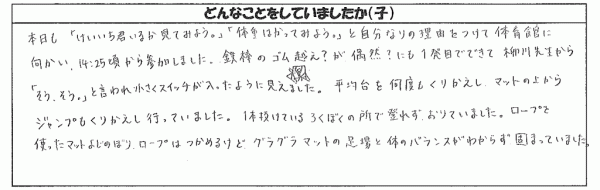 どんなことをしていましたか(子)
本日も「けいいち君いるか見てみよう。」「体争はかってみよう。」と自分なりの理由をつけて体育館に
向かい、14:25頃から参加しました。鉄棒のゴム越え?が偶然?にも1発目でできて柳川先生から
「そう、そう。」と言われ小さくスイッチが入ったように見えました。平均台を何度もくりかえし、マットの上から
ジャンプもくりかえし行っていました。体抜けているろくぼくの所で登れず、おりていました。ロープを
使ったマットよじのぼり、ロープはつかめるけどグラグラマットの足場と体のバランスがわからず固まっていました。